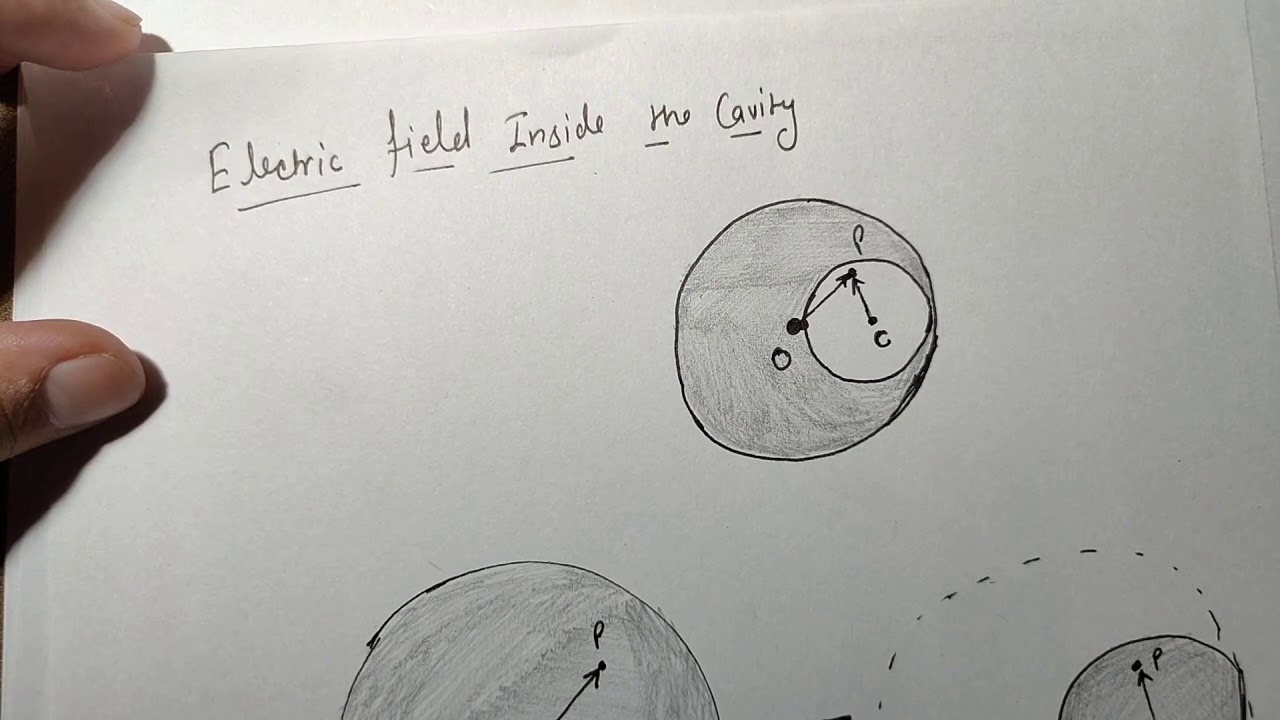 Electric field Inside the Cavity
P
O
C
P
P